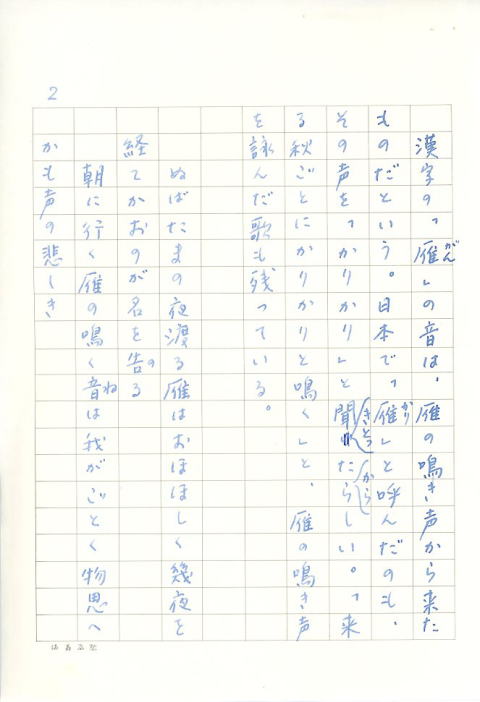 2
漢字の「雁」の音は、雁の鳴き声から来た
がん
ものだという。日本で「雁」と呼んだのも、
かり
その声を「かりかり」と聞きとったかららしい。「来
る秋ごとにかりかりと鳴く」と、雁の鳴き声
を詠んだ歌も残っている。
ぬばたまの夜渡る雁はおほほしく幾夜を
経てかおのが名を告る
の
朝に行く雁の鳴く音は我がごとく物思へ
ね
かも声の悲しき